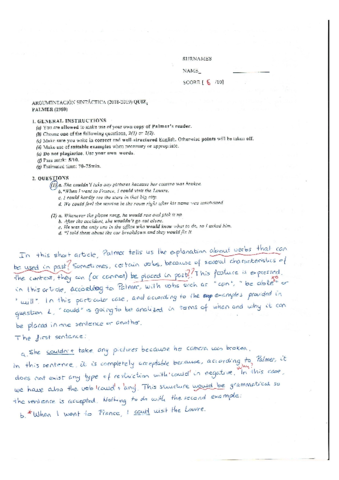 SURNAMES
NAME
SCORE [ 8 /10]
ARGUMENTACIÓN SINTÁCTICA (2018-2019) QUIZ
PALMER (1980)
1. GENERAL INSTRUCTIONS
(a) You are allowed to make use of your own copy of Palmer's reader.
(b) Choose one of the following questions, 2(1) or 2(2).
(c) Make sure you write in correct and well-structured English. Otherwise points will be taken off.
(d) Make use of suitable examples when necessary or appropriate.
(e) Do not plagiarise. Use your own words.
(f) Pass mark: 8/10.
(g) Estimated time: 70-75min.
2. QUESTIONS
(1) a. She couldn't take any pictures because her camera was broken.
b. *When I went to France, I could visit the Louvre.
c. I could hardly see the stars in that big city.
d. We could feel the tension in the room right after his name was mentioned
(2) a. Whenever the phone rang, he would run and pick it up
b. After the accident, she wouldn't go out alone.
c. He was the only one in the office who would know what to do, so I asked him.
d. *I told them about the car breakdown and they would fix it
In this short article, Palmer tells us the explanation about verbs that can
be used in past. Sometimes, certain verbs, because of several characteristics of
the context, they can (or cannot) be placed in past. This feature is expressed,
in this article, according to Palmer, with verbs such as "can", "be able" or
"will". In this particular case, and acording to the examples provided in
question 1, "could" is going to be analized in terms of when and why it can
be placed in one sentence or another.
The first sentence:
a. She wouldn't take any pictures because he camera was broken.
In this sentence, it is completely acceptable because, according to Palmer, it
does not exist any type of restriction with 'could' in negative. In this case,
we have also the verb 'could' + any. This structure would be grammatical so
the sentence is accepted. Nothing to do with the second example:
b. *When I went to France, I could visit the Louvre.